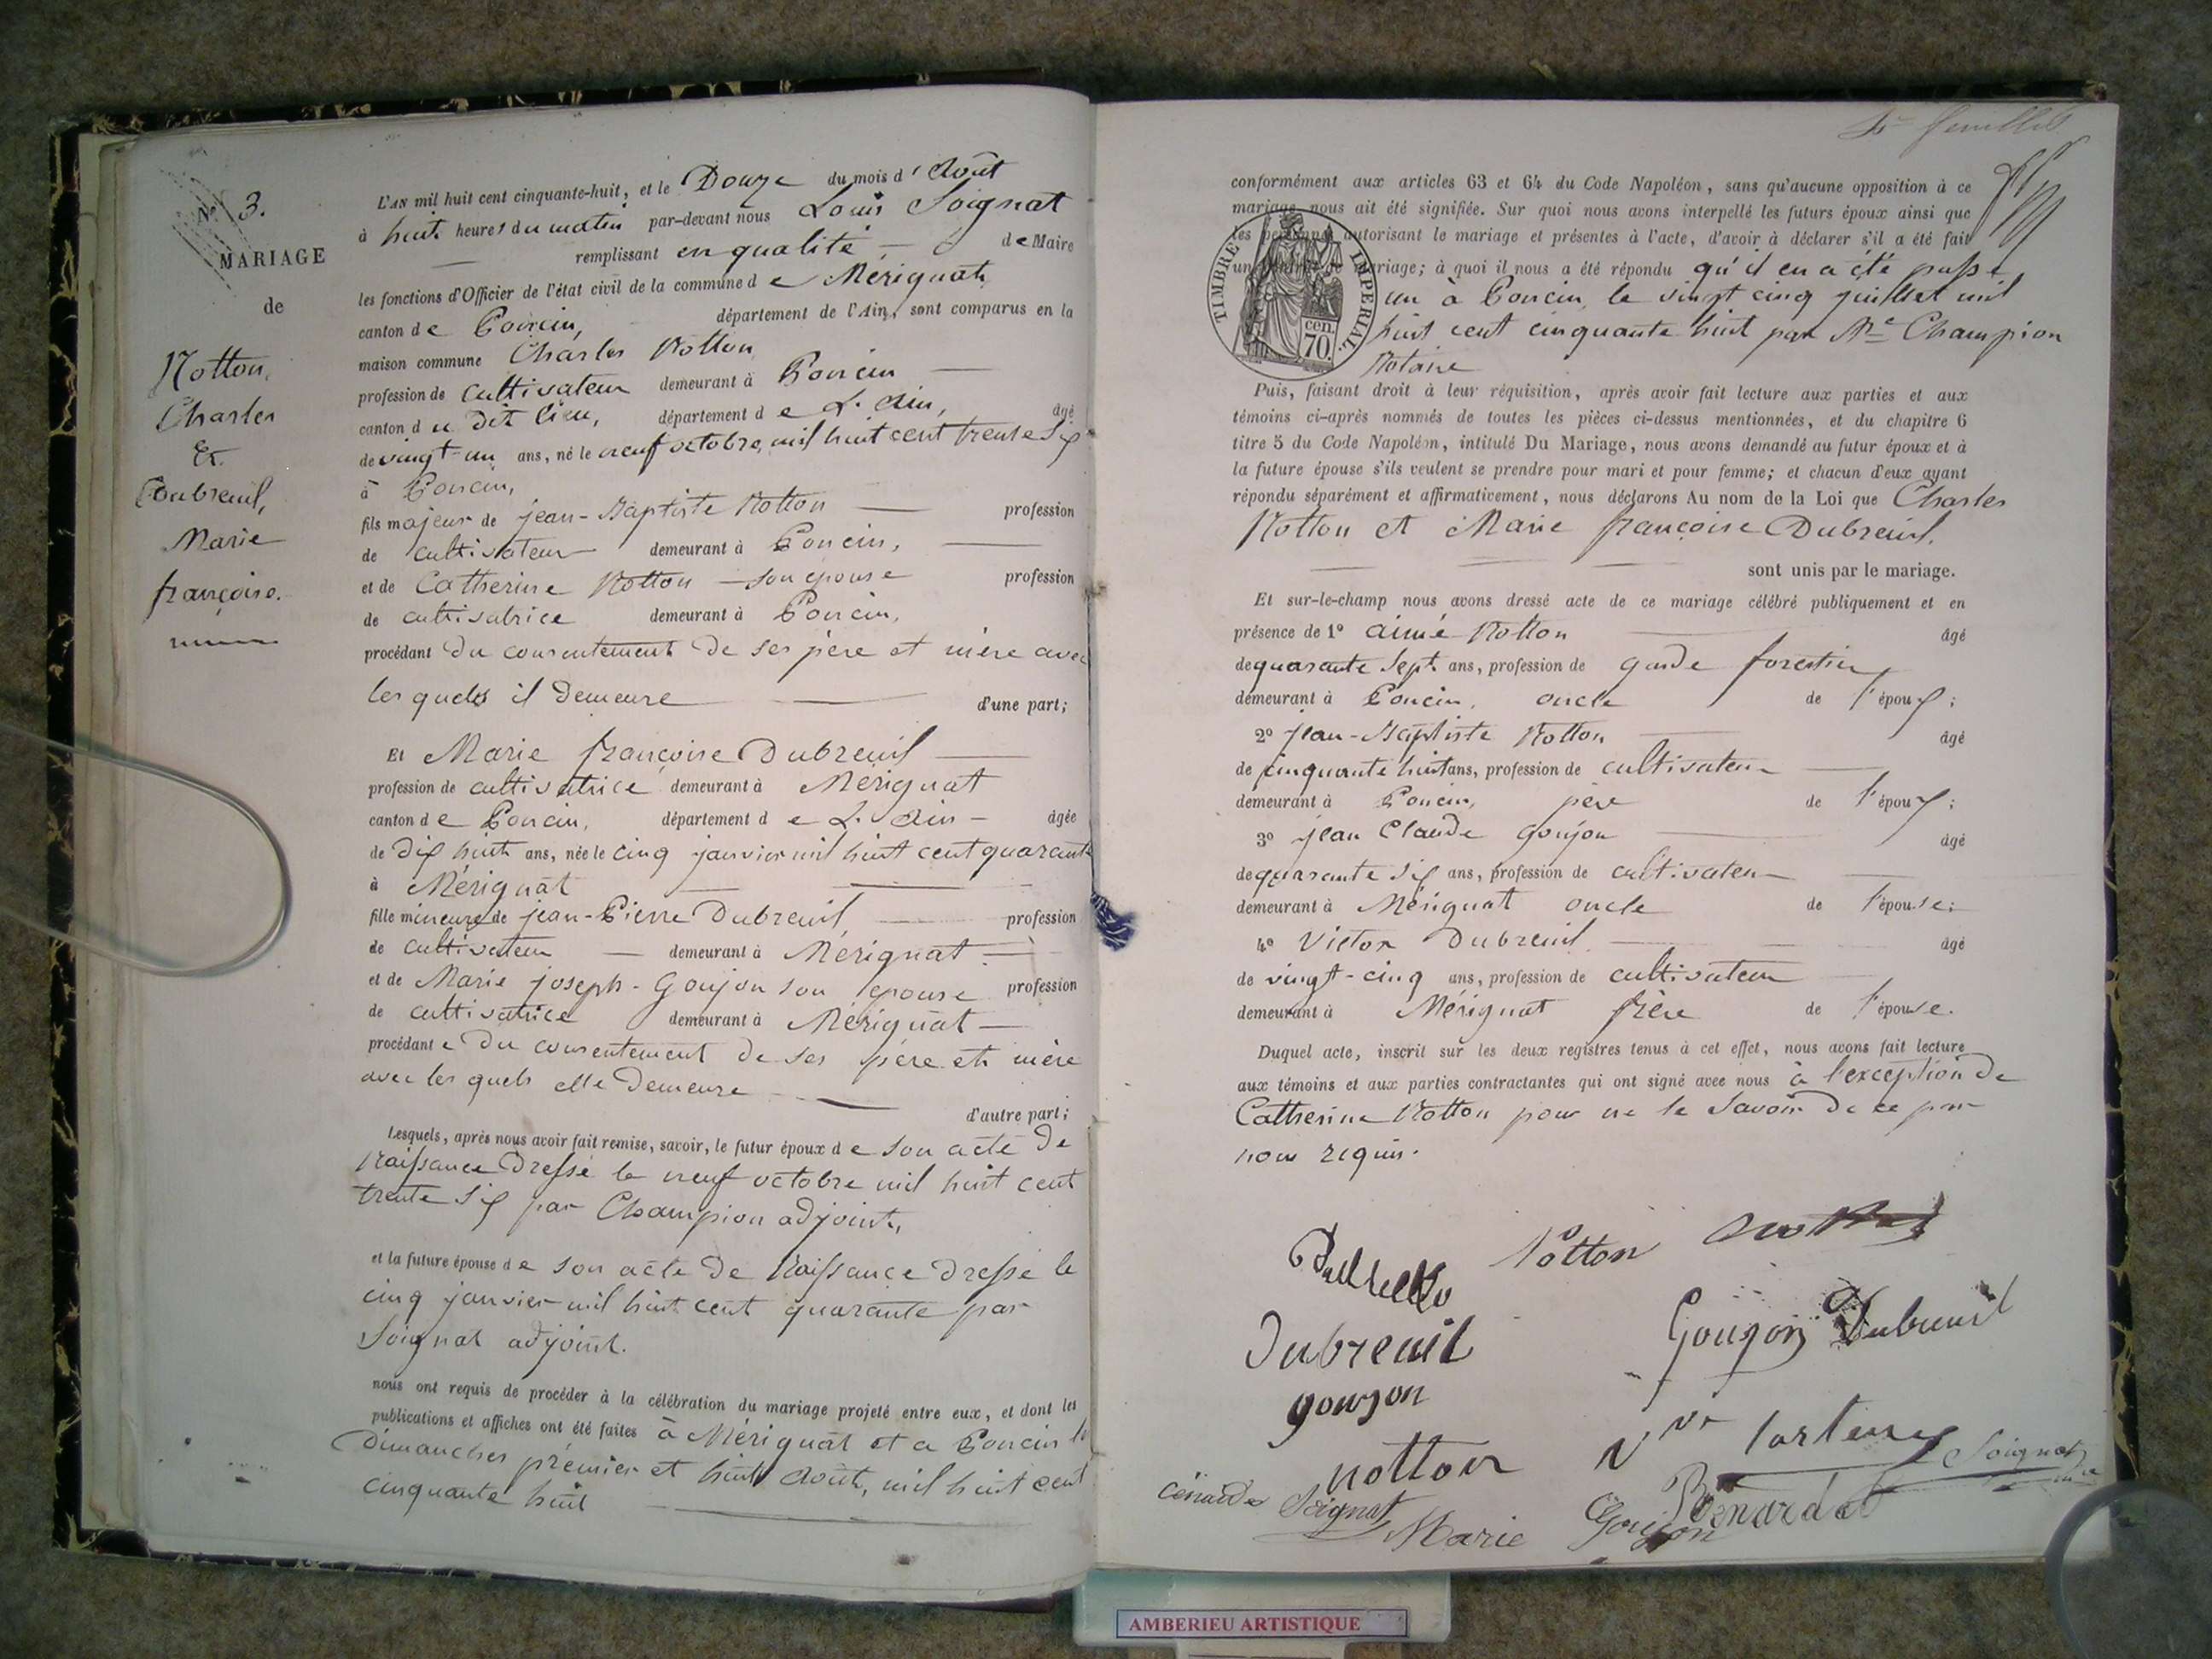 N° 3.
MARIAGE
de
Notton,
Charles
Et
Dubreuil,
Marie
françoise.
L'AN mil huit cent cinquante-huit, et le Douze du mois d'Août
à huit heures du matin par-devant nous Louis Soignat
remplissant en qualité de Maire
les fonctions d'Officier de l'état civil de la commune de Mérignat,
canton de Poncin, département de l'Ain, sont comparus en la
maison commune Charles Notton
profession de cultivateur demeurant à Poncin
canton du dit lieu, département de L'Ain, âgé
de vingt-un ans, né le neuf octobre, mil huit cent trente Six
à Poncin,
fils majeur de jean-Baptiste Notton profession
de cultivateur demeurant à Poncin,
et de Catherine Notton son épouse profession
de cultivatrice demeurant à Poncin,
procédant du consentement de ses père et mère avec
les quels il demeure d'une part;
Et Marie françoise Dubreuil
profession de cultivatrice demeurant à Mérignat
canton de Poncin, département de L'Ain âgée
de dix huit ans, née le cinq janvier mil huit cent quarante
à Mérignat
fille mineure de jean-Pierre Dubreuil profession
de cultivateur demeurant à Mérignat
et de Marie joseph-Goujon son épouse profession
de cultivatrice demeurant à Mérignat
procédante du consentement de ses père et mère
avec les quels elle demeure
d'autre part;
Lesquels, après nous avoir fait remise, savoir, le futur époux de son acte de
Naissance dressé le neuf octobre mil huit cent
trente Six par Champion adjoint,
et la future épouse de son acte de Naissance dressé le
cinq janvier mil huit cent quarante par
Soignat adjoint.
nous ont requis de procéder à la célébration du mariage projeté entre eux, et dont les
publications et affiches ont été faites à Mérignat et a Poncin le
dimanches prémier et huit Août, mil huit cent
cinquante huit
feuillet
conformément aux articles 63 et 64 du Code Napoléon, sans qu'aucune opposition à ce
mariage nous ait été signifiée. Sur quoi nous avons interpellé les futurs époux ainsi que
les personnes autorisant le mariage et présentes à l'acte, d'avoir à déclarer s'il a été fait
un contrat de mariage; à quoi il nous a été répondu qu'il en a été passé
un à Poncin, le vingt cinq juillet mil
huit cent cinquante huit par Me Champion
Notaire
TIMBRE IMPERIAL.
cen.
70.
Puis, faisant droit à leur réquisition, après avoir fait lecture aux parties et aux
témoins ci-après nommés de toutes les pièces ci-dessus mentionnées, et du chapitre 6
titre 5 du Code Napoléon, intitulé Du Mariage, nous avons demandé au futur époux et à
la future épouse s'ils veulent se prendre pour mari et pour femme; et chacun d'eux ayant
répondu séparément et affirmativement, nous déclarons Au nom de la Loi que Charles
Notton et Marie françoise Dubreuil.
sont unis par le mariage.
Et sur-le-champ nous avons dressé acte de ce mariage célébré publiquement et en
présence de 1° aimé Notton âgé
de quarante Sept ans, profession de garde forestier,
demeurant à Poncin, oncle de l'époux;
2° jean-Baptiste Notton âgé
de cinquante huit ans, profession de cultivateur
demeurant à Poncin, père de l'époux;
3° jean Claude goujon âgé
de quarante six ans, profession de cultivateur
demeurant à Mérignat oncle de l'épouse;
4° Victor Dubreuil âgé
de vingt-cinq ans, profession de cultivateur
demeurant à Mérignat frère de l'épouse.
Duquel acte, inscrit sur les deux registres tenus à cet effet, nous avons fait lecture
aux témoins et aux parties contractantes qui ont signé avec nous à l'exception de
Catherine Notton pour ne le Savoir de ce par
nous requis.
Notton
Dubreuil
Goujon Dubreuil
goujon
notton
Soignat
Soignat
Marie Goujon
Benardat
AMBERIEU ARTISTIQUE